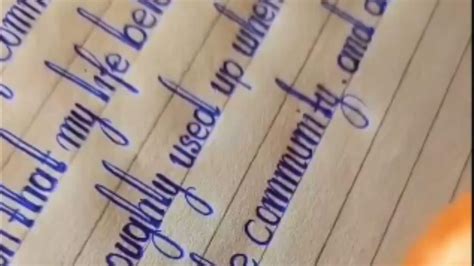 comm
n that my life belo
oughly used up when
e community. and a